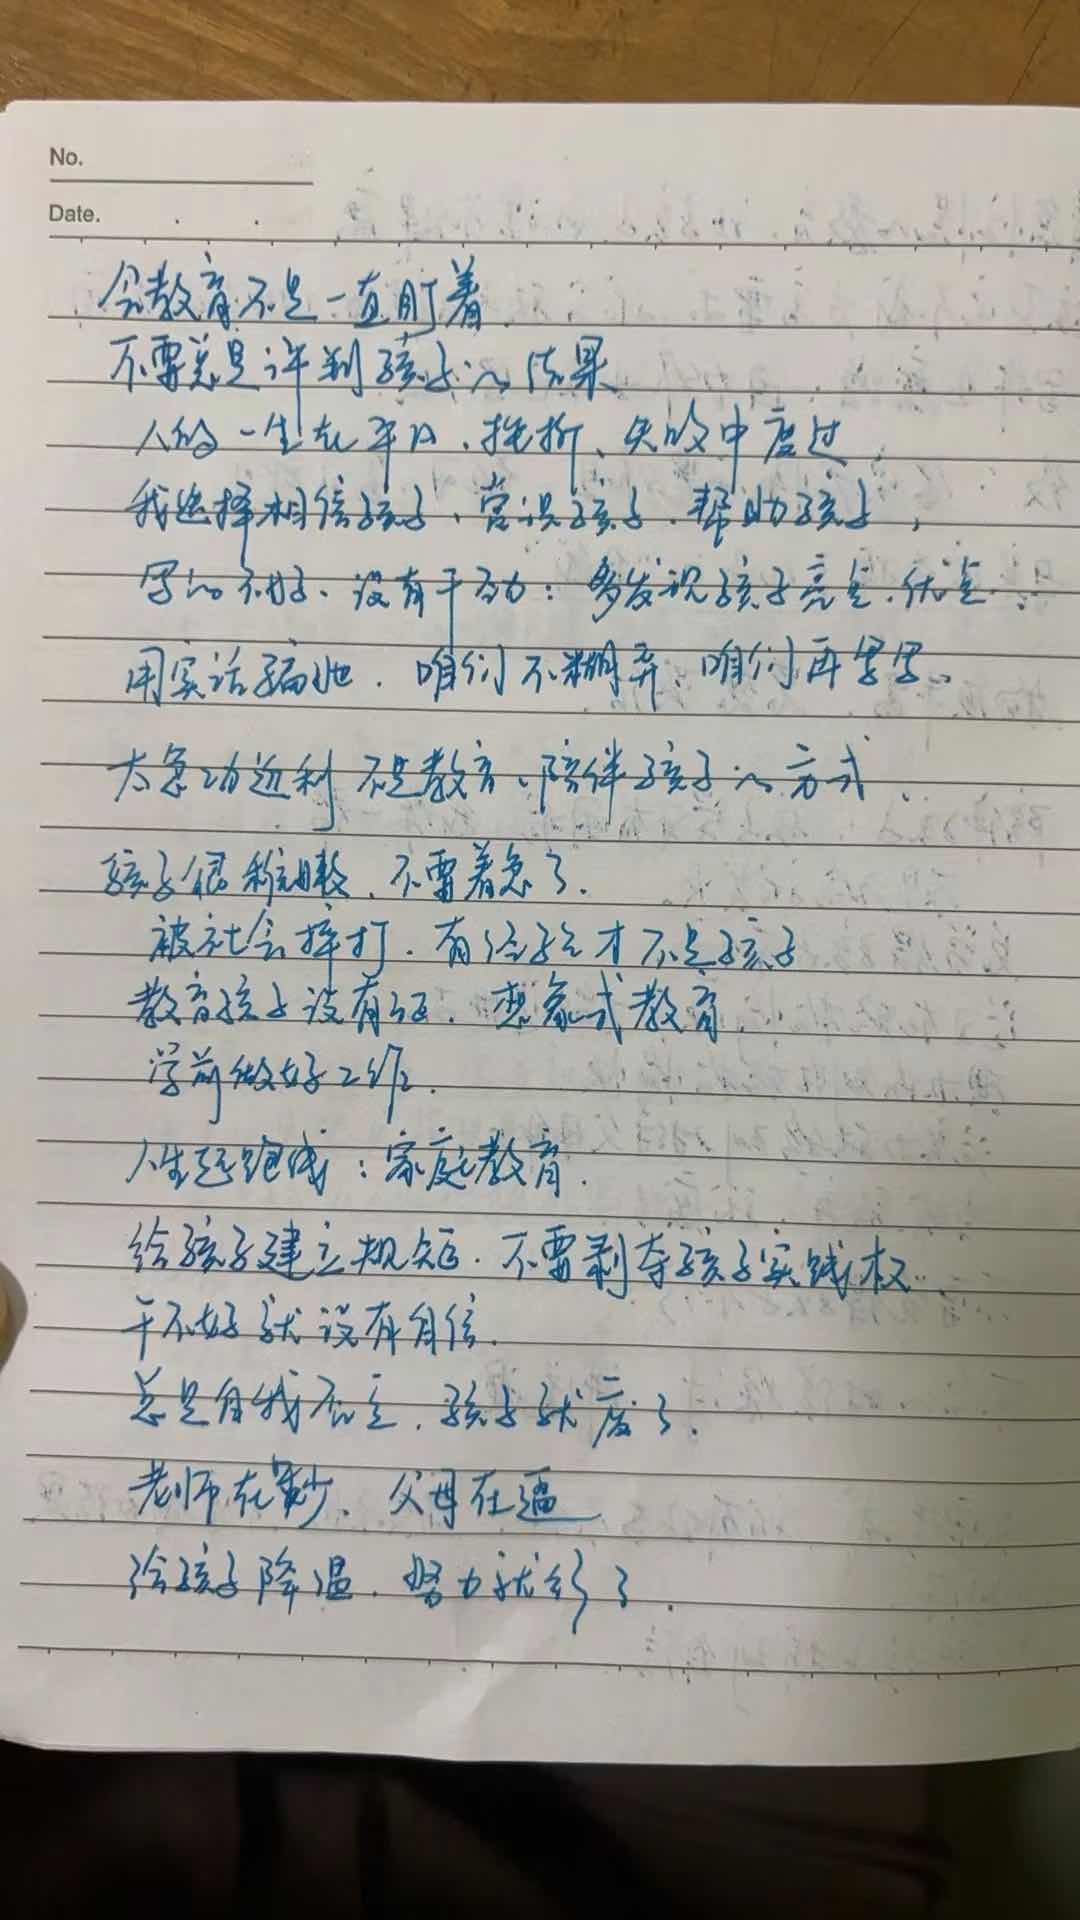 No.
Date.
会教育不是一直盯着
不要总是评判孩子的结果
人的一生在平凡、挫折、失败中度过
我选择相信孩子、赏识孩子、帮助孩子,
写的不好、没有干劲:多发现孩子亮点、优点、
用实话骗他、咱们不糊弄、咱们再写写。
太急功近利不是教育、陪伴孩子的方式、
孩子很稚嫩、不要着急了、
被社会摔打、有经验才不是孩子
教育孩子没有、想象式教育、
学前做好工作、
人生起跑线:家庭教育、
给孩子建立规矩、不要剥夺孩子实践权、
干不好就没有自信、
总是自我否定、孩子就废了、
老师在、父母在逼
给孩子降温、努力就行了、